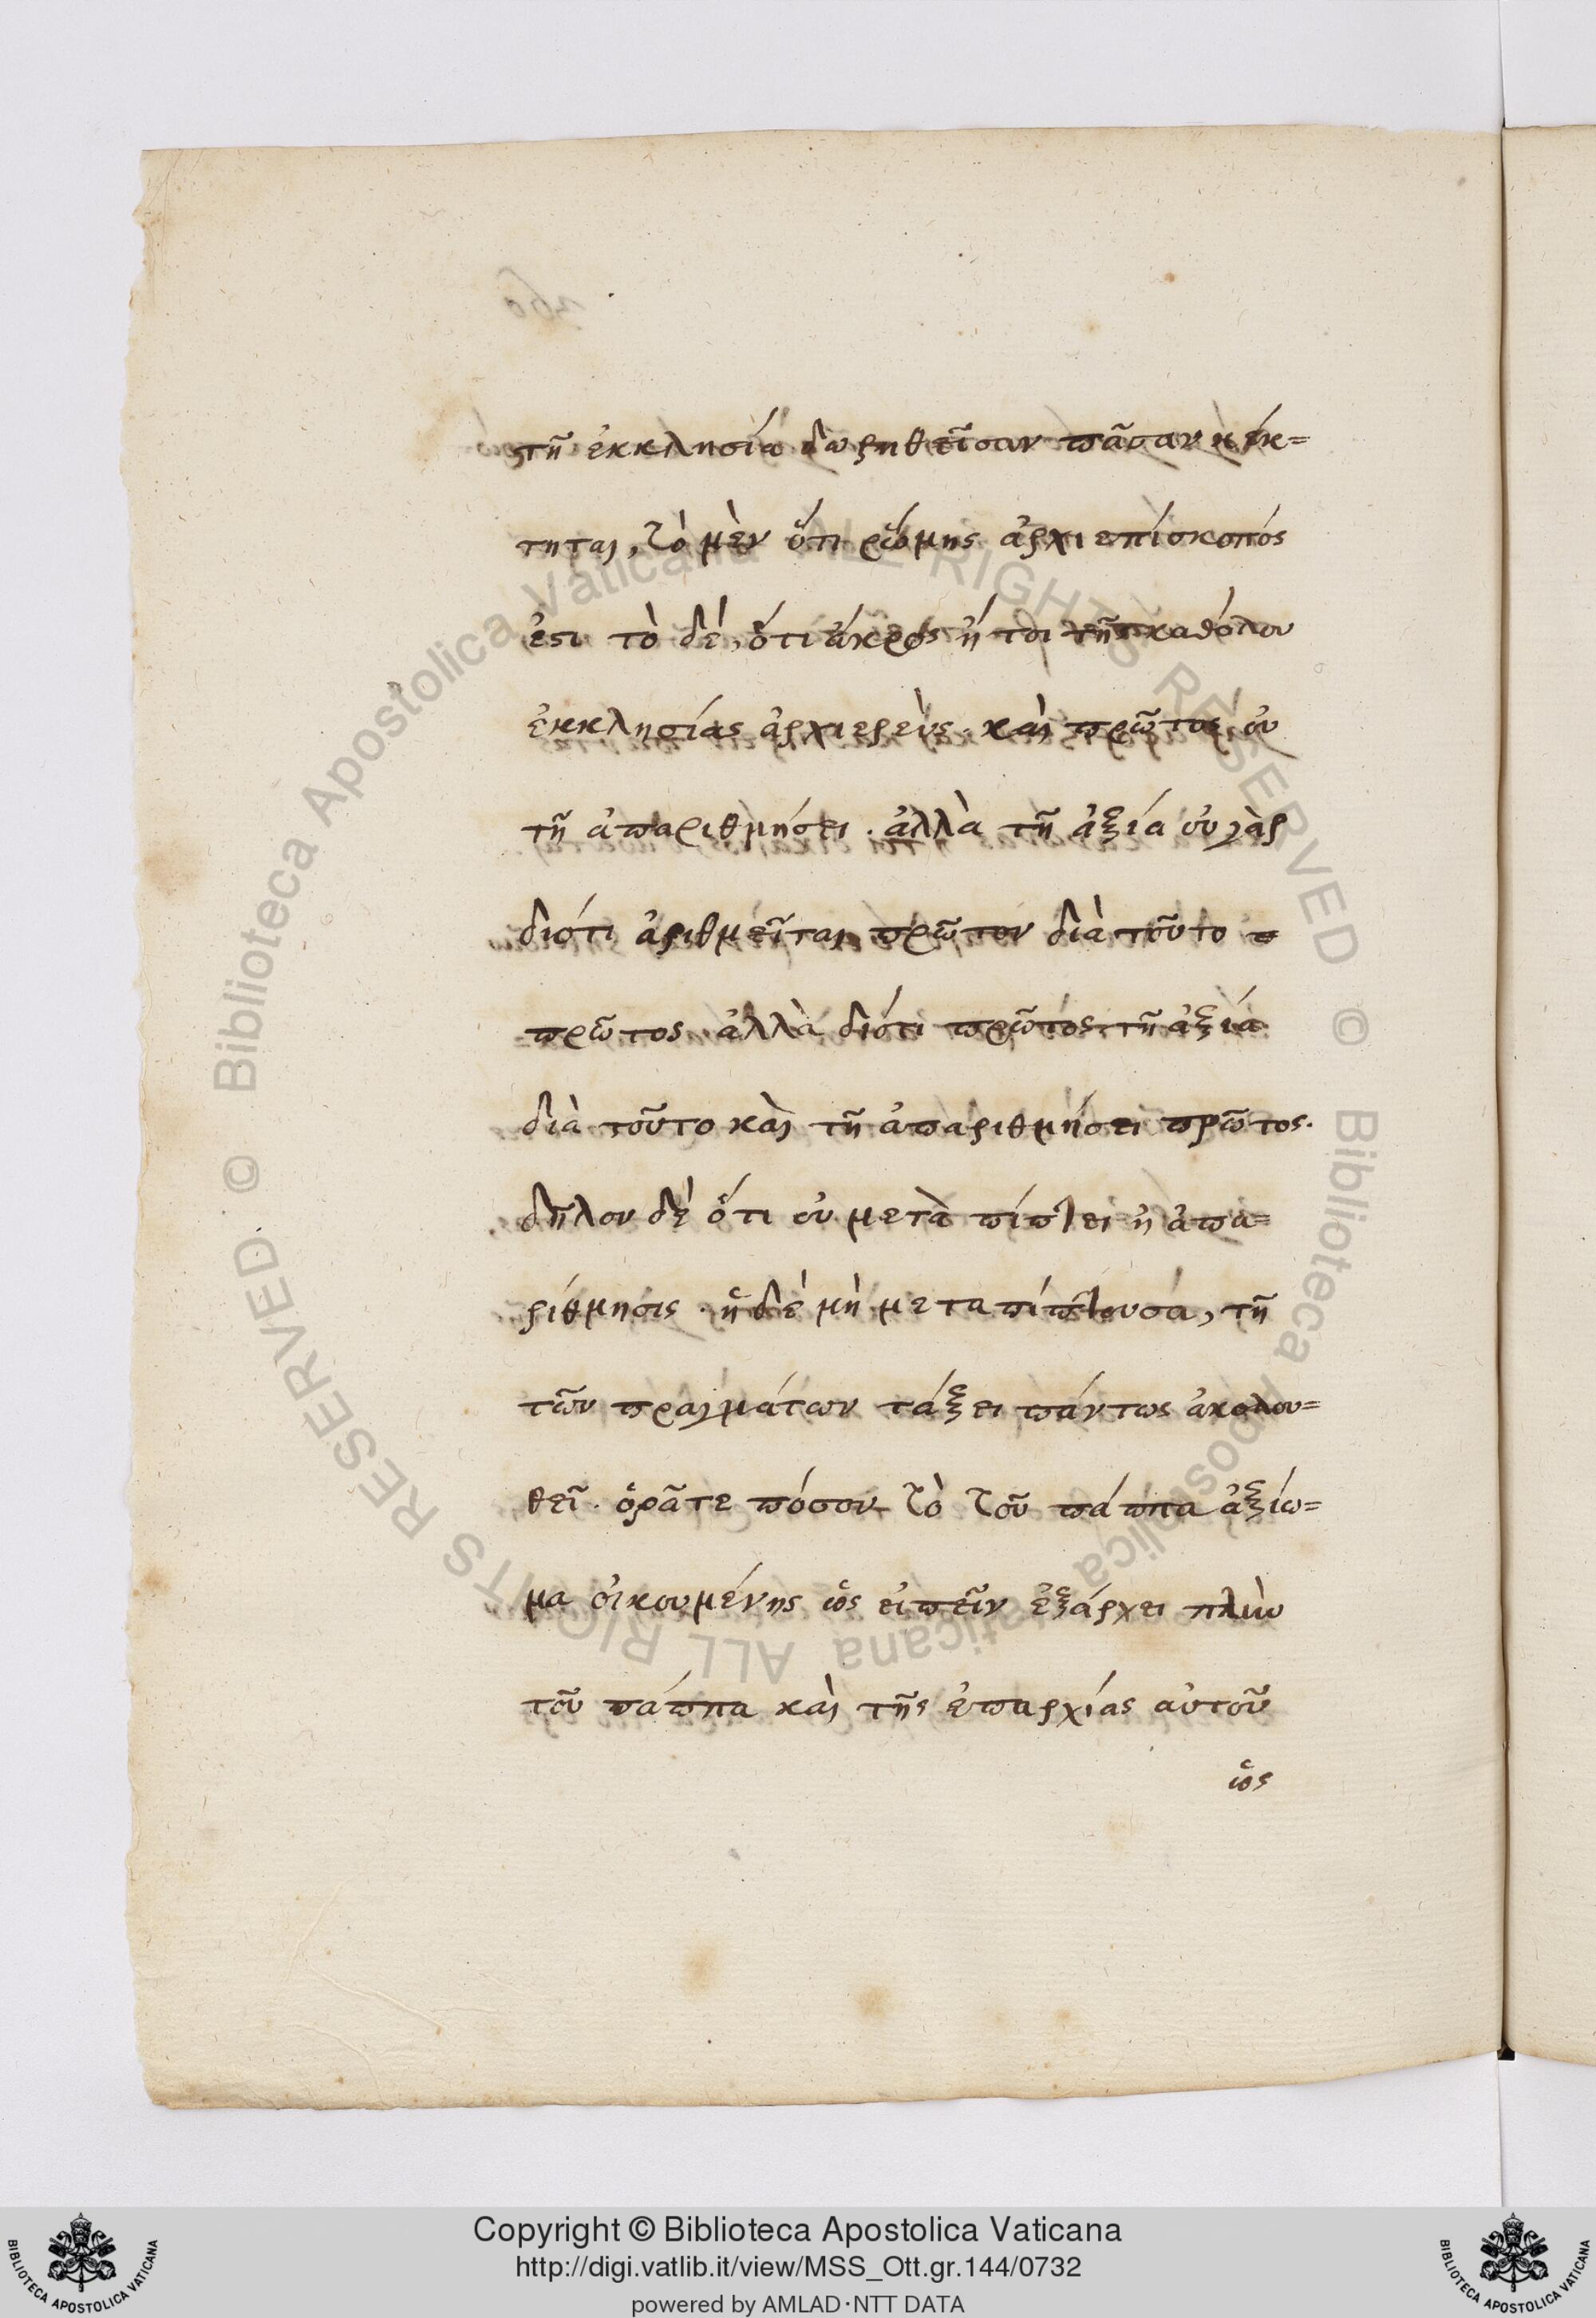 τῆ ἐκκλησία δωρηθεῖσαν πᾶσαν κέκ=
τηται, τὸ μὲν ὅτι ῥώμης ἀρχιεπίσκοπός
ἐστι τὸ δέ, ὅτι ἄκρος ἤτοι τῆς καθόλου
ἐκκλησίας ἀρχιερεὺς. καὶ πρῶτος, οὐ
τῆ ἀπαριθμήσει. ἀλλὰ τῆ ἀξία οὐ γὰρ
διότι ἀριθμεῖται πρῶτον διὰ τοῦτο
πρῶτος. ἀλλὰ διότι πρῶτός τῆ ἀξία
διὰ τοῦτο καὶ τῆ ἀπαριθμήσει πρῶτος.
δῆλον δὲ ὅτι οὐ μετὰ πίπτει ἡ ἀπα=
ρίθμησις. ἡ δὲ μὴ μεταπίπτουσα, τῆ
τῶν πραγμάτων τάξει πάντως ἀκολου=
θεῖ. ὁρᾶτε πόσον τὸ τοῦ πάππα ἀξίω=
μα οἰκουμένης ὡς εἰπεῖν ἐξάρχει πλὴν
τοῦ πάππα καὶ τῆς ἐπαρχίας αὐτοῦ
ὡς
Copyright © Biblioteca Apostolica Vaticana
http://digi.vatlib.it/view/MSS_Ott.gr.144/0732
powered by AMLAD·NTT DATA
BIBLIOTECA APOSTOLICA VATICANA
BIBLIOTECA APOSTOLICA VATICANA
© Biblioteca Apostolica Vaticana ALL RIGHTS RESERVED
© Biblioteca Apostolica Vaticana ALL RIGHTS RESERVED